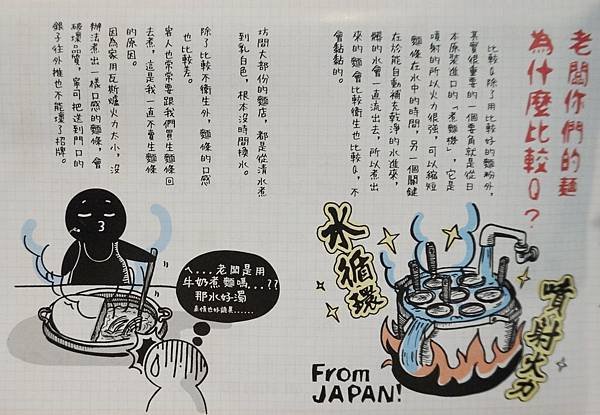 老闆你們的麵
為什麼比較Q?
比較Q除了用比較好的麵粉外，
其實很重要的一個要角就是從日
本原裝進口的「煮麵機」，它是
噴射的所以火力很強，可以縮短
麵條在水中的時間，另一個關鍵
在於能自動補充乾淨的水進來，
髒的水會一直流出去，所以煮出
來的麵會比較衛生也比較Q，不
會黏黏的。
坊間大部份的麵店，都是從清水煮
到乳白色，根本沒時間換水。
除了比較不衛生外，麵條的口感
也比較差。
客人也常常要跟我們買生麵條回
去煮，這是我一直不賣生麵條
的原因。
因為家用瓦斯爐火力太小，沒
辦法煮出一樣口感的麵條，會
破壞品質，寧可把送到門口的
銀子往外推也不能壞了招牌。
水循環
噴射火力
From
JAPAN!
ㄟ...老闆是用
牛奶煮麵嗎...??
那水好濁